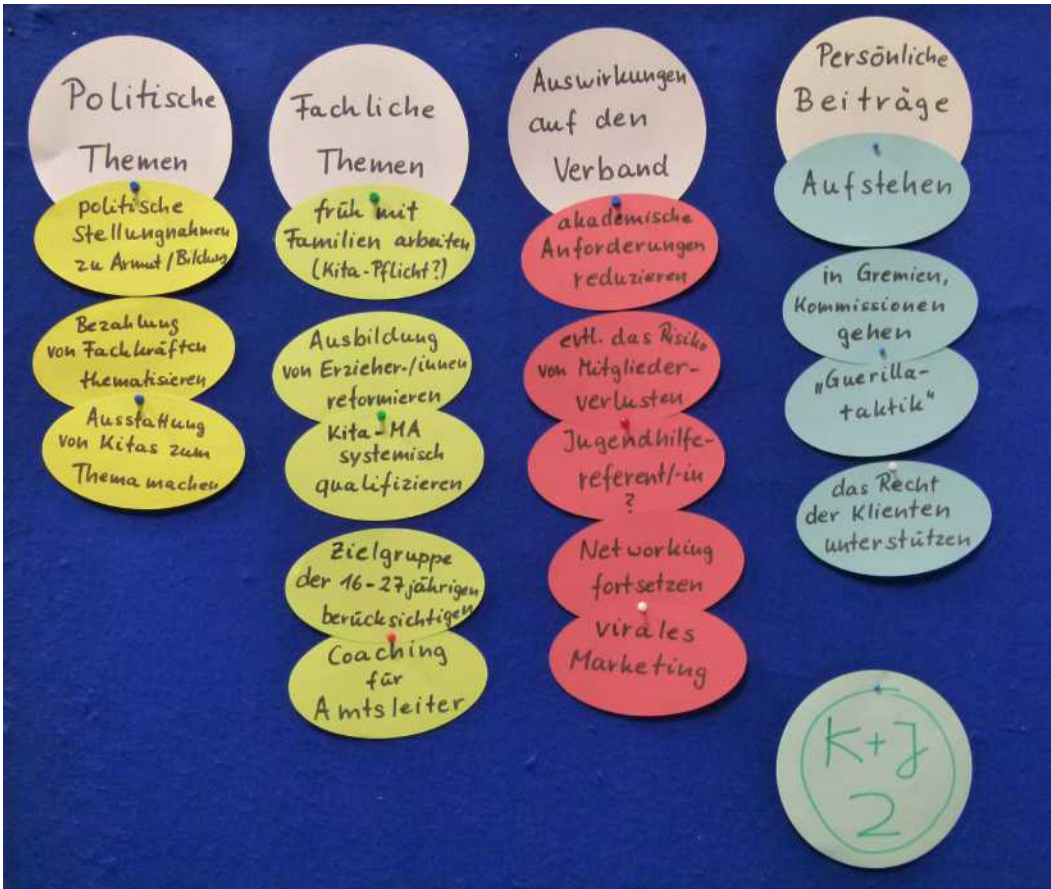 Politische
Themen
politische
Stellungnahmen
zu Armut/Bildung
Bezahlung
von Fachkräften
thematisieren
Ausstattung
von Kitas zum
Thema machen
Fachliche
Themen
früh mit
Familien arbeiten
(Kita-Pflicht?)
Ausbildung
von Erzieher-/innen
reformieren
Kita-MA
systemisch
qualifizieren
Zielgruppe
der 16-27jährigen
berücksichtigen
Coaching
für
Amtsleiter
Auswirkungen
auf den
Verband
akademische
Anforderungen
reduzieren
evtl. das Risiko
von Mitglieder-
verlusten
Jugendhilfe-
referent/-in
?
Networking
fortsetzen
virales
Marketing
Persönliche
Beiträge
Aufstehen
in Gremien,
Kommissionen
gehen
„Guerilla-
taktik“
das Recht
der Klienten
unterstützen
K+J
2